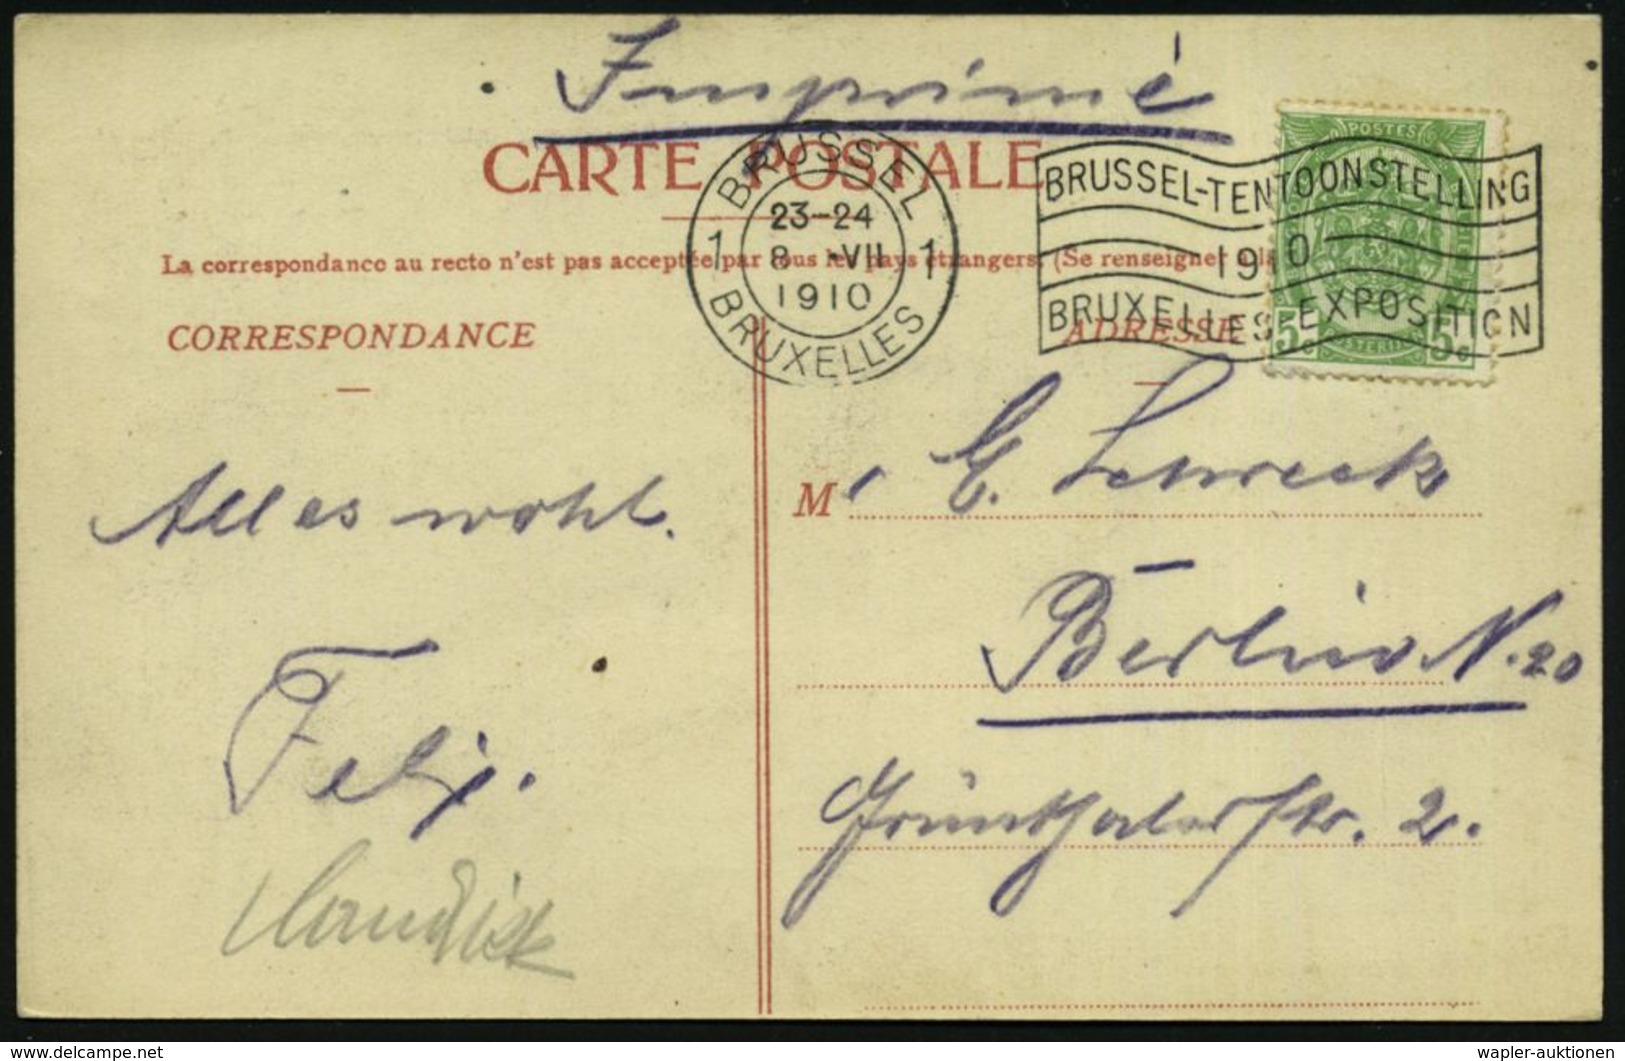 Imprimé
CARTE POSTALE
BRUSSEL
23-24
8 -VII
1910
1 1
BRUXELLES
BRUSSEL-TENTOONSTELLING
1910
BRUXELLES-EXPOSITION
POSTES
5c 5c
La correspondance au recto n'est pas acceptée par tous les pays étrangers. (Se renseigner à la
CORRESPONDANCE
ADRESSE
M
C. Schreck
Alles wohl.
Berlin N. 20
Felix.
Grünthalerstr. 2.
wapler-auktionen